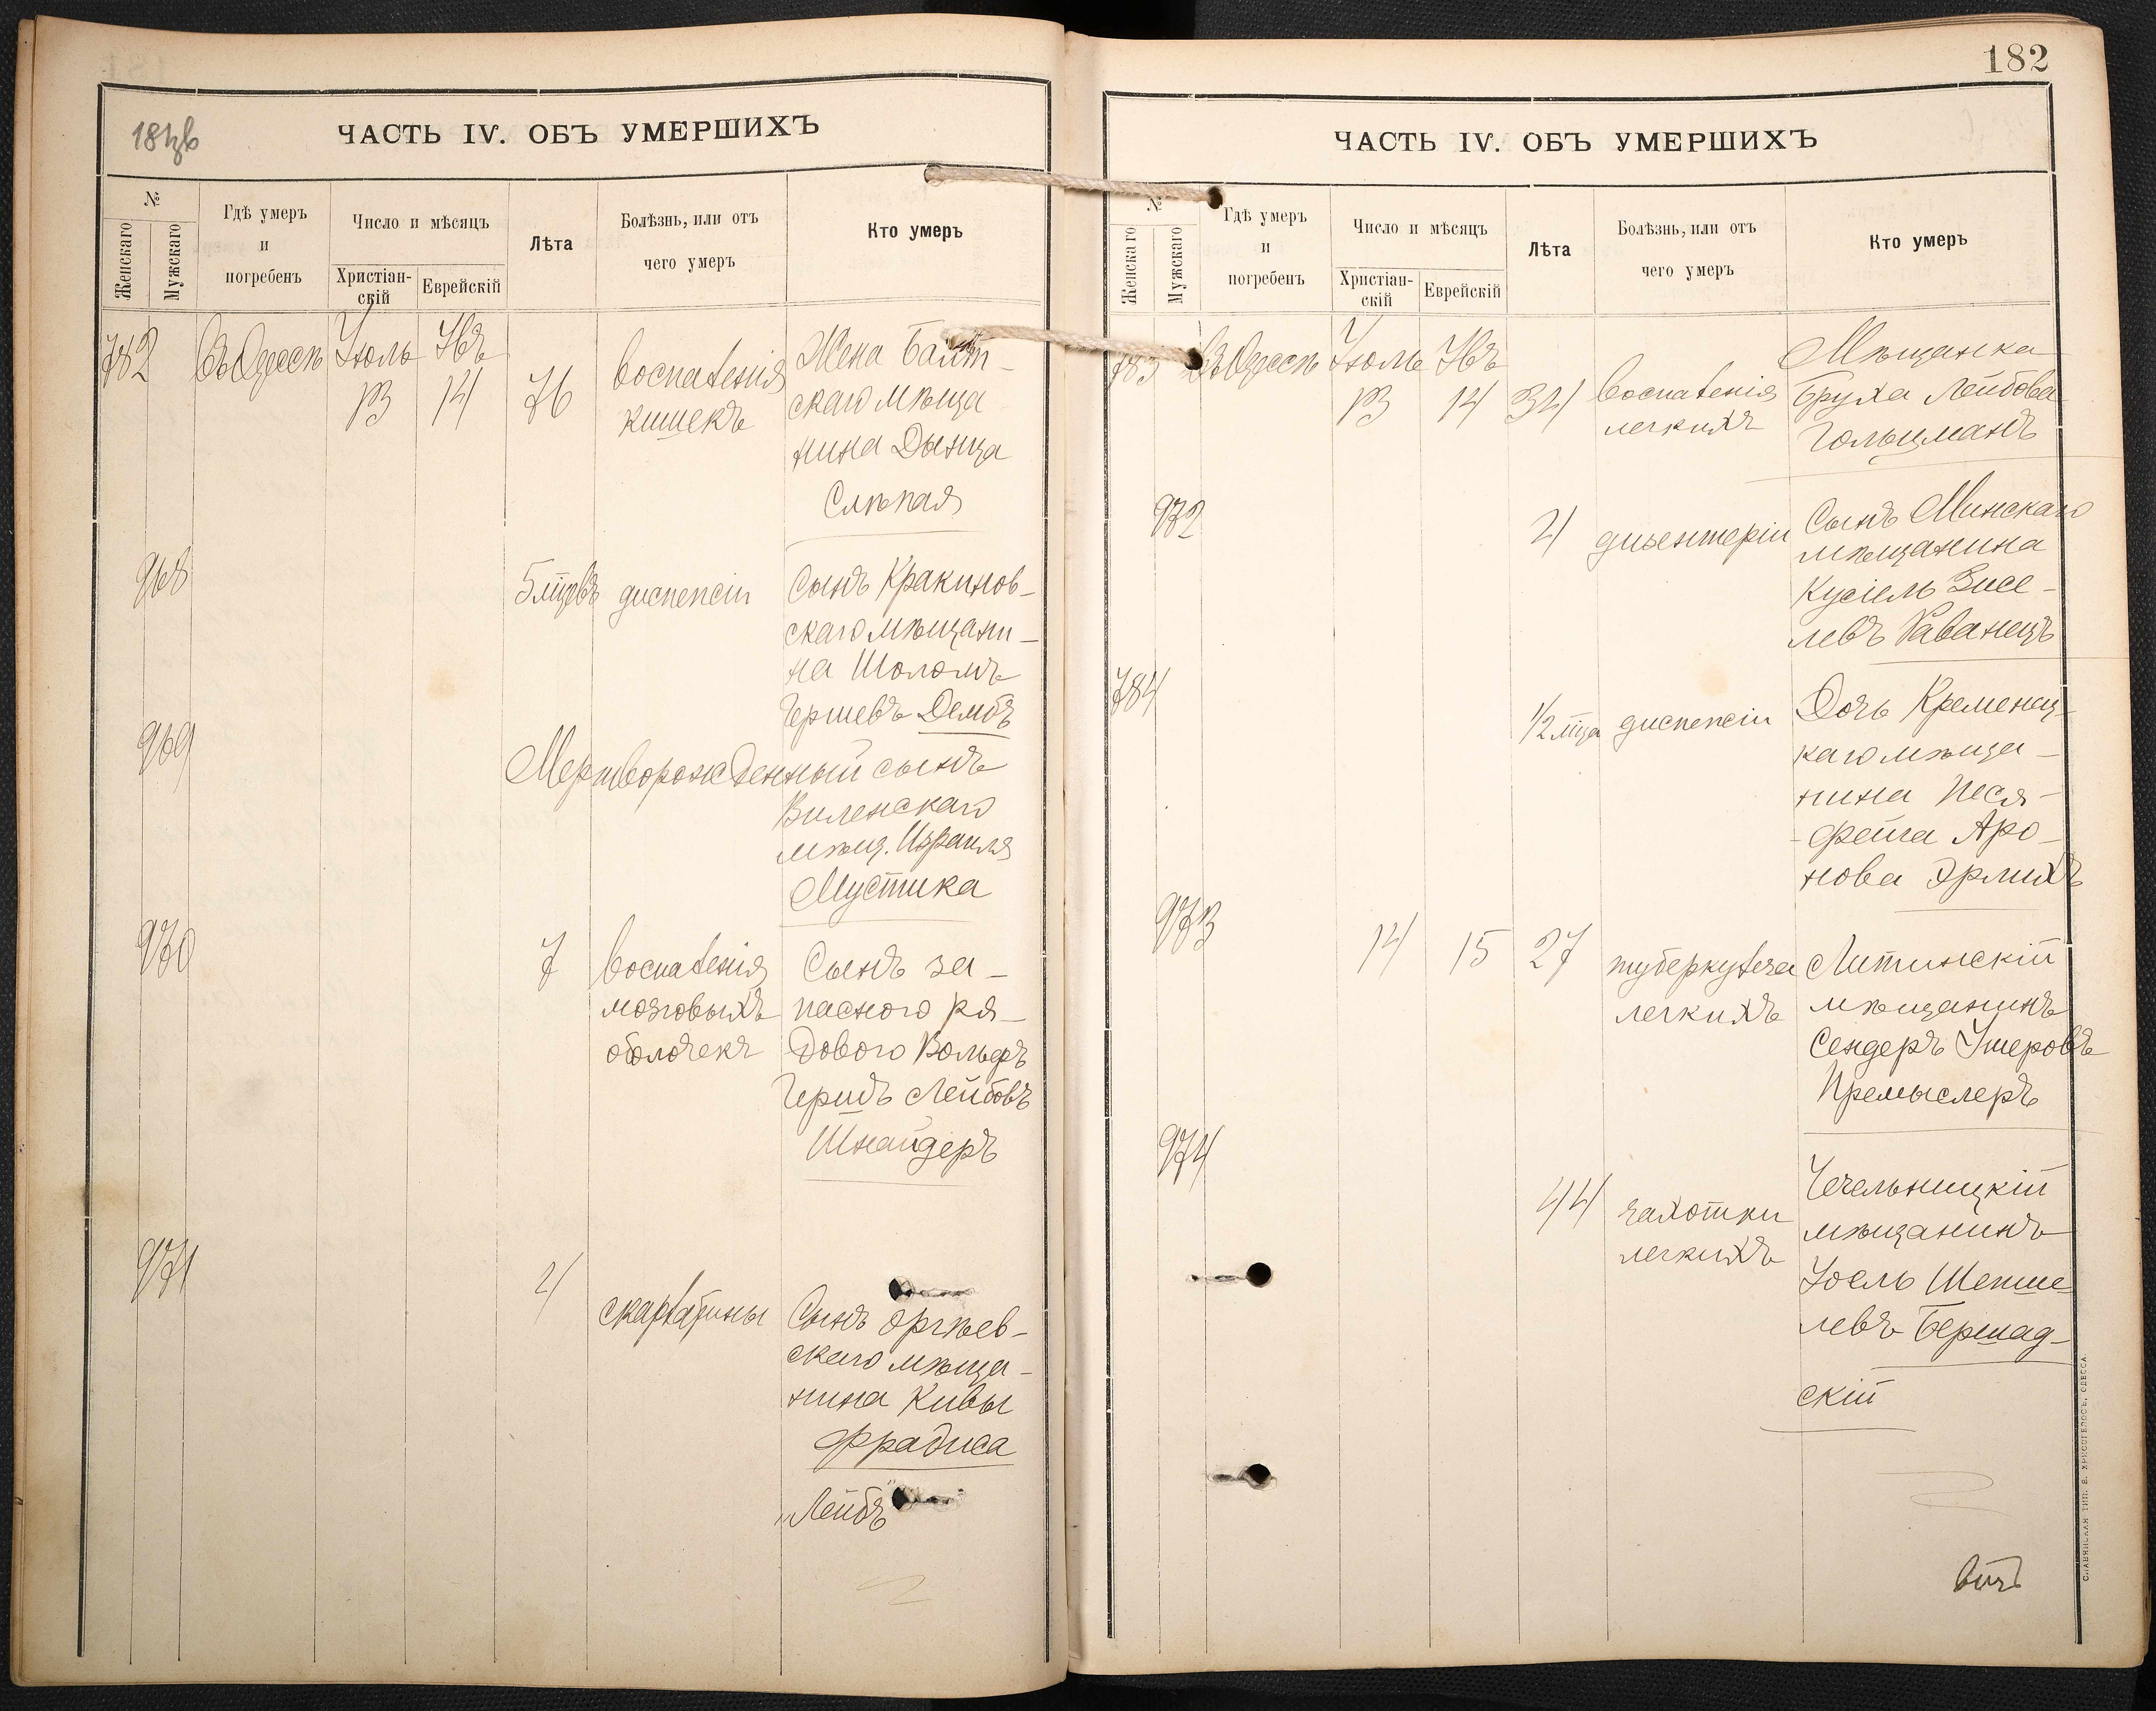 ЧАСТЬ IV. ОБЪ УМЕРШИХЪ
№
Женскаго
Мужскаго
Гдѣ умеръ
и
погребенъ
Число и мѣсяцъ
Христіан-
скій
Еврейскій
Лѣта
Болѣзнь, или отъ
чего умеръ
Кто умеръ
782
Въ Одессѣ
Іюль
13
14
76
воспаленія
кишекъ
Жена Балт-
скаго мѣща
нина Дынца
Слѣпая
968
5 мцевъ
диспепсіи
Сынъ Кракинов-
скаго мѣщани-
на Шоломъ
Гершевъ Дембъ
969
Мертворожденный сынъ
Виленскаго
мѣщ. Израиля
Мустика
970
7
воспаленія
мозговыхъ
оболочекъ
Сынъ за-
пасного ря-
дового Вольфъ
Гершъ Лейбовъ
Шнайдеръ
971
4
скарлатины
Сынъ Оргѣев-
скаго мѣща-
нина Кивы
Фрадиса
„Лейбъ"
182
ЧАСТЬ IV. ОБЪ УМЕРШИХЪ
№
Женскаго
Мужскаго
Гдѣ умеръ
и
погребенъ
Число и мѣсяцъ
Христіан-
скій
Еврейскій
Лѣта
Болѣзнь, или отъ
чего умеръ
Кто умеръ
783
Въ Одессѣ
Іюль
13
14
34
воспаленія
легкихъ
Мѣщанка
Бруха Лейбова
Гольцманъ
972
4
дизентеріи
Сынъ Минскаго
мѣщанина
Кусіель Зисе-
левъ Раванецъ
784
1/2 мца
диспепсіи
Дочь Кременец-
каго мѣща-
нина Песя-
Фейга Аро-
нова Эрлихъ
973
14
15
27
туберкулеза
легкихъ
Литинскій
мѣщанинъ
Сендеръ Ушеровъ
Премыслеръ
974
44
чахотки
легкихъ
Чечельницкій
мѣщанинъ
Іоель Шепше
левъ Бершад-
скій
СЛАВЯНСКАЯ ТИП. Е. ХРИСОГЕЛОСЪ, ОДЕССА.